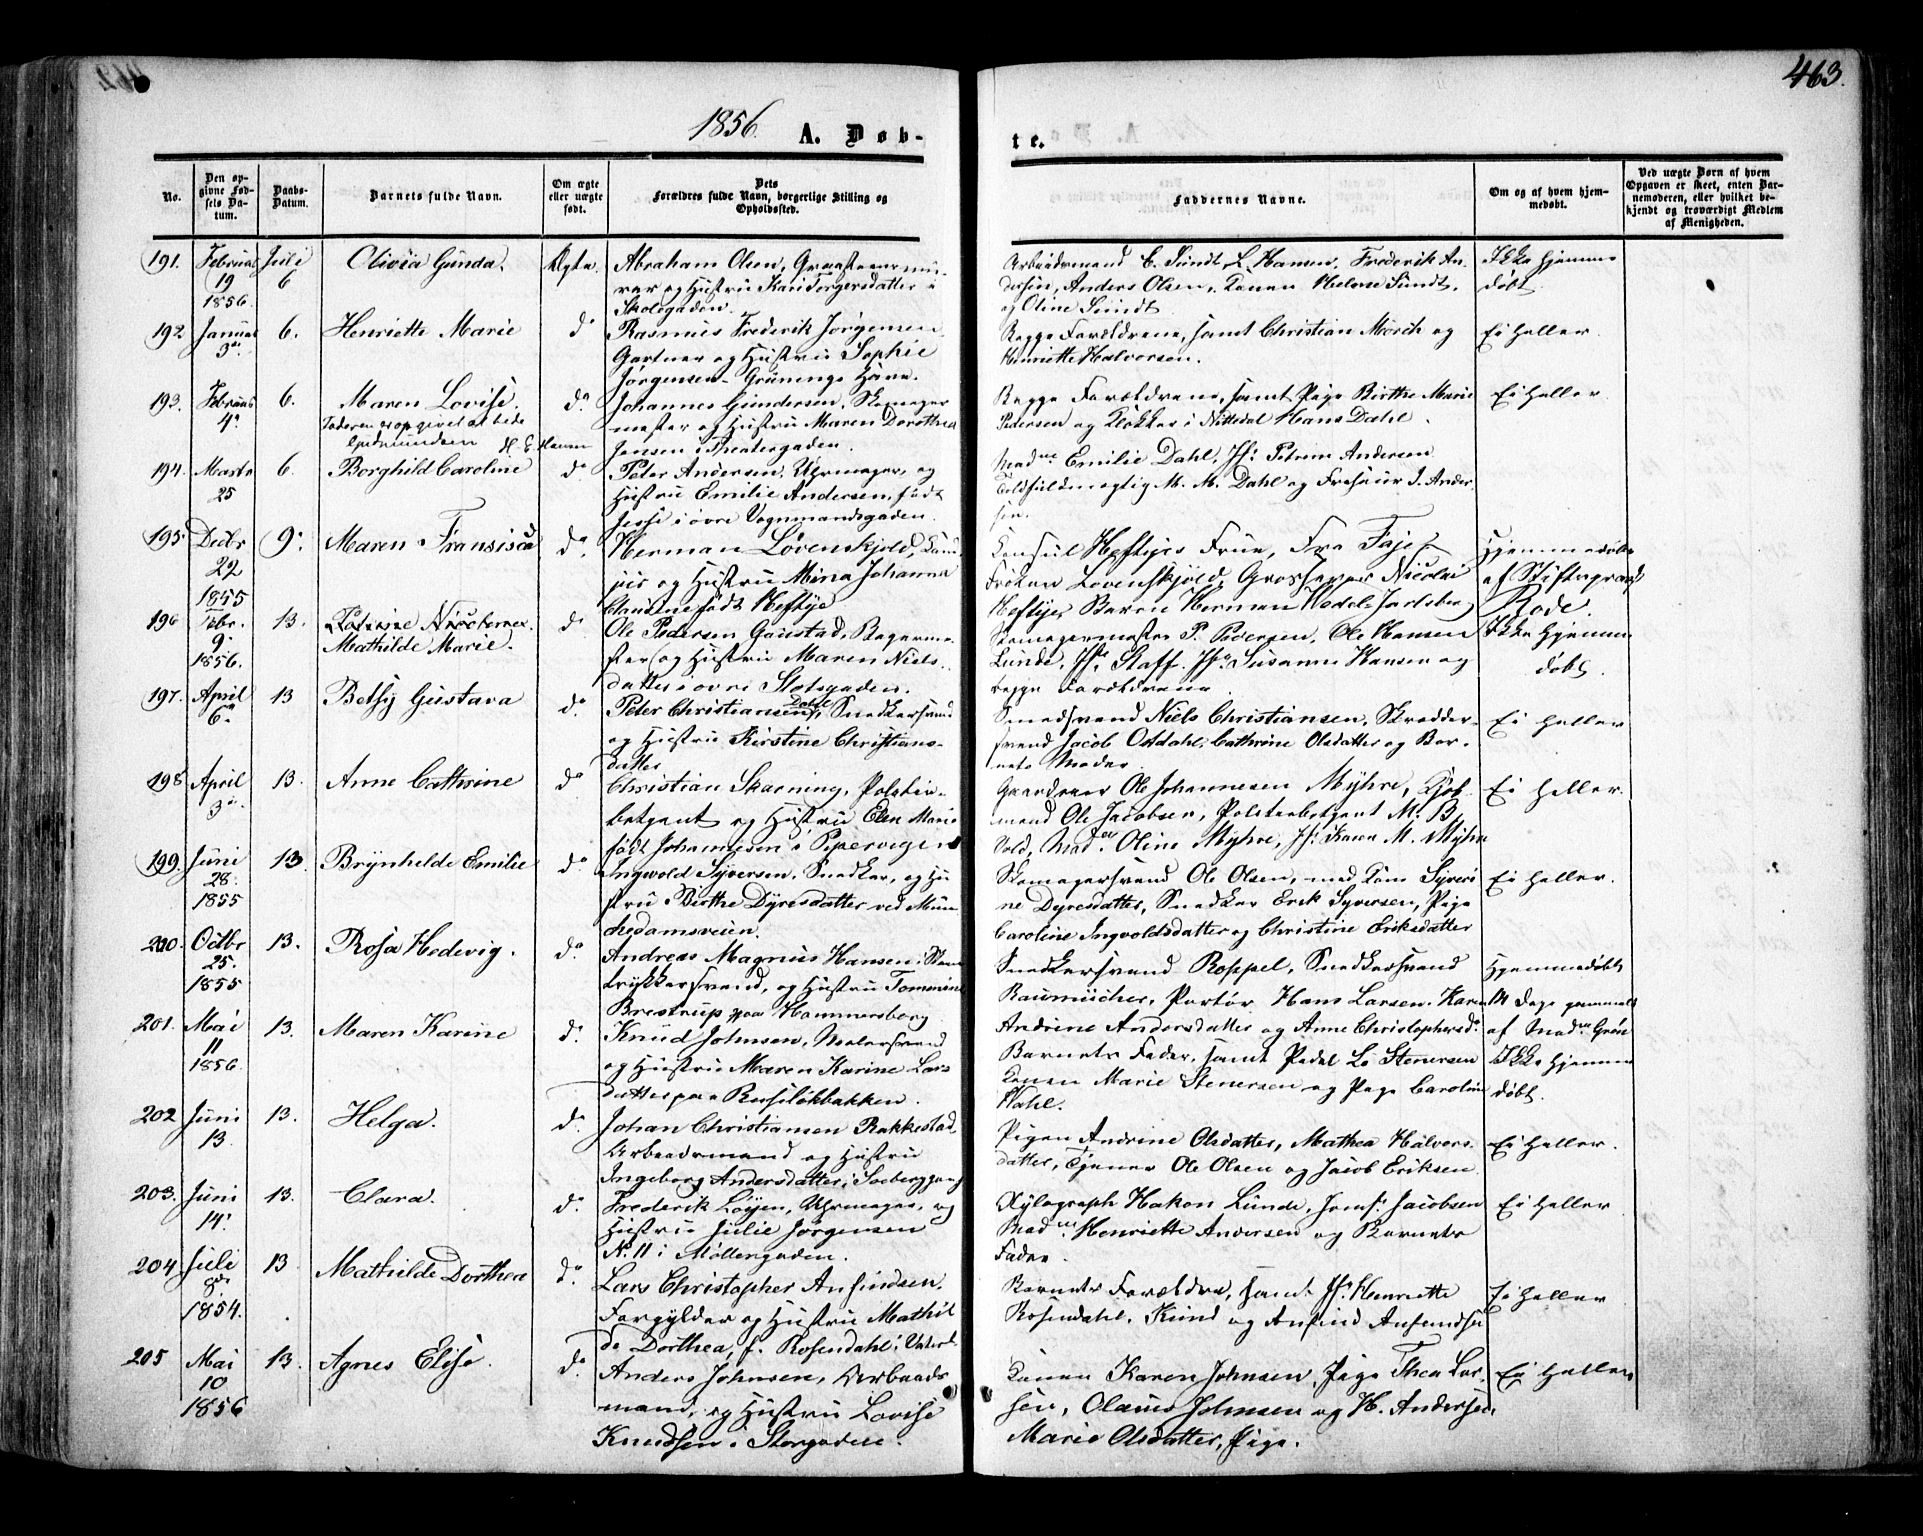 463.
1856. A. Døb-
te.
No.
Den op-
givne Fød-
sels Da-
tum.
Daabs-
Datum.
Barnets fulde Navn.
Om ægte
eller uægte
født.
Dets
Forældres fulde Navn, borgerlige Stilling og
Opholdssted.
Faddernes Navne.
Om og af hvem hjem-
medøbt.
Ved uægte Børn af hvem
Opgaven er skeet, enten Bar-
nemoderen, eller hvilket be-
kjendt og troværdigt Medlem
af Menigheden.
191. Februar 19 1856. Juli 6 Olivia Gunda. Ægte.
Abraham Olsen, Graasteensmu-
rer og Hustru Kari Torgersdatter i
Skolegaden.
Arbeidsmand C. Sundt, L. Hansen, Frederik An-
dersen, Anders Olsen, Konen Helene Sundt,
og Oline Sundt.
Ikke hjemme
døbt.
192 Januar 3die. 6. Henriette Marie do
Rasmus Frederik Jørgensen
Gartner og Hustru Sophie
Jørgensen - Grünings Have.
Begge Forældrene, samt Christian Mørch og
Henriette Halvorsen.
Ei heller.
193. Februar 4de 6. Maren Lovise. do
Faderen er opgivet at hede
Gudmundsen
Johannes Gundersen, Skomager
mester og Hustru Maren Dorothea
Jensen i Theatergaden.
Begge Forældrene, samt Pige Birthe Marie
Pedersen og Klokker i Nittedal Hans Dahl.
Ei heller.
194. Marts 25 6. Borghild Caroline do
Peter Andersen, Uhrmager, og
Hustru Emilie Andersen, født
Jesse i øvre Vognmandsgaden.
Madme Emilie Dahl, Jfr Petrine Andersen
Toldfuldmægtig M. M. Dahl og Friseur J. Ander-
sen.
195. Decbr 22 1855 9. Maren Fransisca do.
Herman Løvenskjold, Kam-
jun og Hustru Mina Johanna
Clausine født Heftye
Consul Heftyes Frue, Fru Faje
Frøken Løvenskjold, Grosserer Nicolai
Heftye, Baron Herman Wedel-Jarlsberg
Hjemmedøbt
af Stiftsprovst
Rode.
196 Febr. 9. 1856. 13. Mathilde Marie. do
Ole Pedersen Gaustad, Bagerme-
ster, og Hustru Maren Niels-
datter i øvre Slotsgaden.
Skomagermester P. Pedersen, Ole Hansen
Lunde, Jfr. Staff. Jfr. Susanne Hansen og
begge Forældrene.
Ikke hjemme
døbt.
197. April 6te 13 Betsy Gustava do.
Peter Christiansen Dahl, Snedkersvend
og Hustru Kirstine Christians-
datter
Smedsvend Niels Christiansen, Skrædder-
svend Jacob Ostdahl, Cathrine Olsdatter og Bar-
nets Moder.
Ei heller
198 April 3die. 13. Anne Cathrine do
Christian Skarning, Politie-
betjent og Hustru Elen Marie
født Johannesen i Pipervigen
Gaardeier Ole Johannesen Myhre, Kjøb-
mand Ole Jacobsen, Politiebetjent M. B.
Vold, Madme Oline Myhre, Jfr. Karen M. Myhre
Ei heller.
199. Juni 28. 1855 13 Brynhilde Emilie do
Ingvold Syversen, Snedker, og Hu
stru Birthe Dyresdatter ved Mun-
kedamsveien.
Skomagersvend Ole Olsen, med Kone Syveri
ne Dyresdatter, Snedker Erik Syversen, Pige
Caroline Ingvoldsdatter og Christine Eriksdatter
Ei heller.
200. Octbr 25. 1855 13. Rosa Hedevig. do.
Andreas Magnus Hansen, Steen
trykkersvend, og Hustru Tommine
Brestrup paa Hammersborg
Snedkersvend Roppel, Snedkersvend
Raumücher, Portør Hans Larsen. Karen
Andrine Andersdatter og Anne Christophersdr
Hjemmedøbt
14 Dage gammelt
af Madme Grøn
201. Mai 11 1856. 13. Maren Karine do.
Knud Johnsen, Malersvend
og Hustru Maren Karine Lars
datter paa Ruseløkbakken.
Barnets Fader, samt Pedel L. Stenersen
Konen Marie Stenersen og Pige Caroline
Wahl.
Ikke hjemme
døbt.
202 Juni 13. 13. Helga. do.
Johan Christiansen Rakkestad,
Arbeidsmand og Hustru
Ingeborg Andersdatter,
Pigen Andrine Olsdatter, Mathea Halvors-
datter, Tjener Ole Olsen og Jacob Eriksen
Ei heller.
203. Juni 14. 13. Clara. do.
Frederik Løyen, Uhrmager, og
Hustru Julie Jørgensen
No. 11 i Møllergaden.
Xylograph Hakon Lunde, Jomfr. Jacobsen
Madme Henriette Andersen og Barnets
Fader
Ei heller
204 Juli 8de 1854. 13 Mathilde Dorthea do
Lars Christopher Ansindsen,
Forgylder og Hustru Mathil
de Dorthea, f. Rosendahl,
Barnets Forældre, samt Jfr Henriette
Rosendahl, Knud og Ansind Ansindsen
Ei heller
205 Mai 10 1856 13. Agnes Elise. do.
Anders Johnsen, Arbeids
mand, og Hustru Lovise
Knudsen i Storgaden.
Konen Karen Johnsen, Pige Thea Lar-
sen, Olaus Johnsen og H. Andersen,
Marie Olsdatter, Pige.
Ei heller